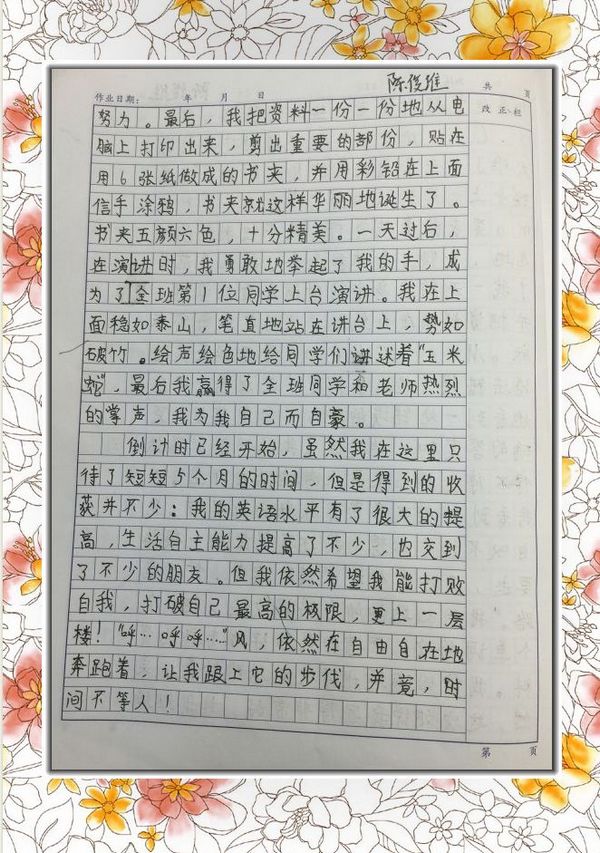 陈俊维
作业日期： 年 月 日 共 页
改正栏
努力。最后，我把资料一份一份地从电
脑上打印出来，剪出重要的部份，贴在
用6张纸做成的书夹，并用彩铅在上面
信手涂鸦，书夹就这样华丽地诞生了。
书夹五颜六色，十分精美。一天过后，
在演讲时，我勇敢地举起了我的手，成
为了全班第1位同学上台演讲。我在上
面稳如泰山，笔直地站在讲台上，势如
破竹。绘声绘色地给同学们讲述着“玉米
蛇”，最后我赢得了全班同学和老师热烈
的掌声，我为我自己而自豪。
倒计时已经开始，虽然我在这里只
待了短短5个月的时间，但是得到的收
获并不少：我的英语水平有了很大的提
高，生活自主能力提高了不少，也交到
了不少的朋友。但我依然希望我能打败
自我，打破自己最高的极限，更上一层
楼！“呼…呼呼……”风，依然在自由自在地
奔跑着，让我跟上它的步伐，并竟，时
间不等人！
第 页